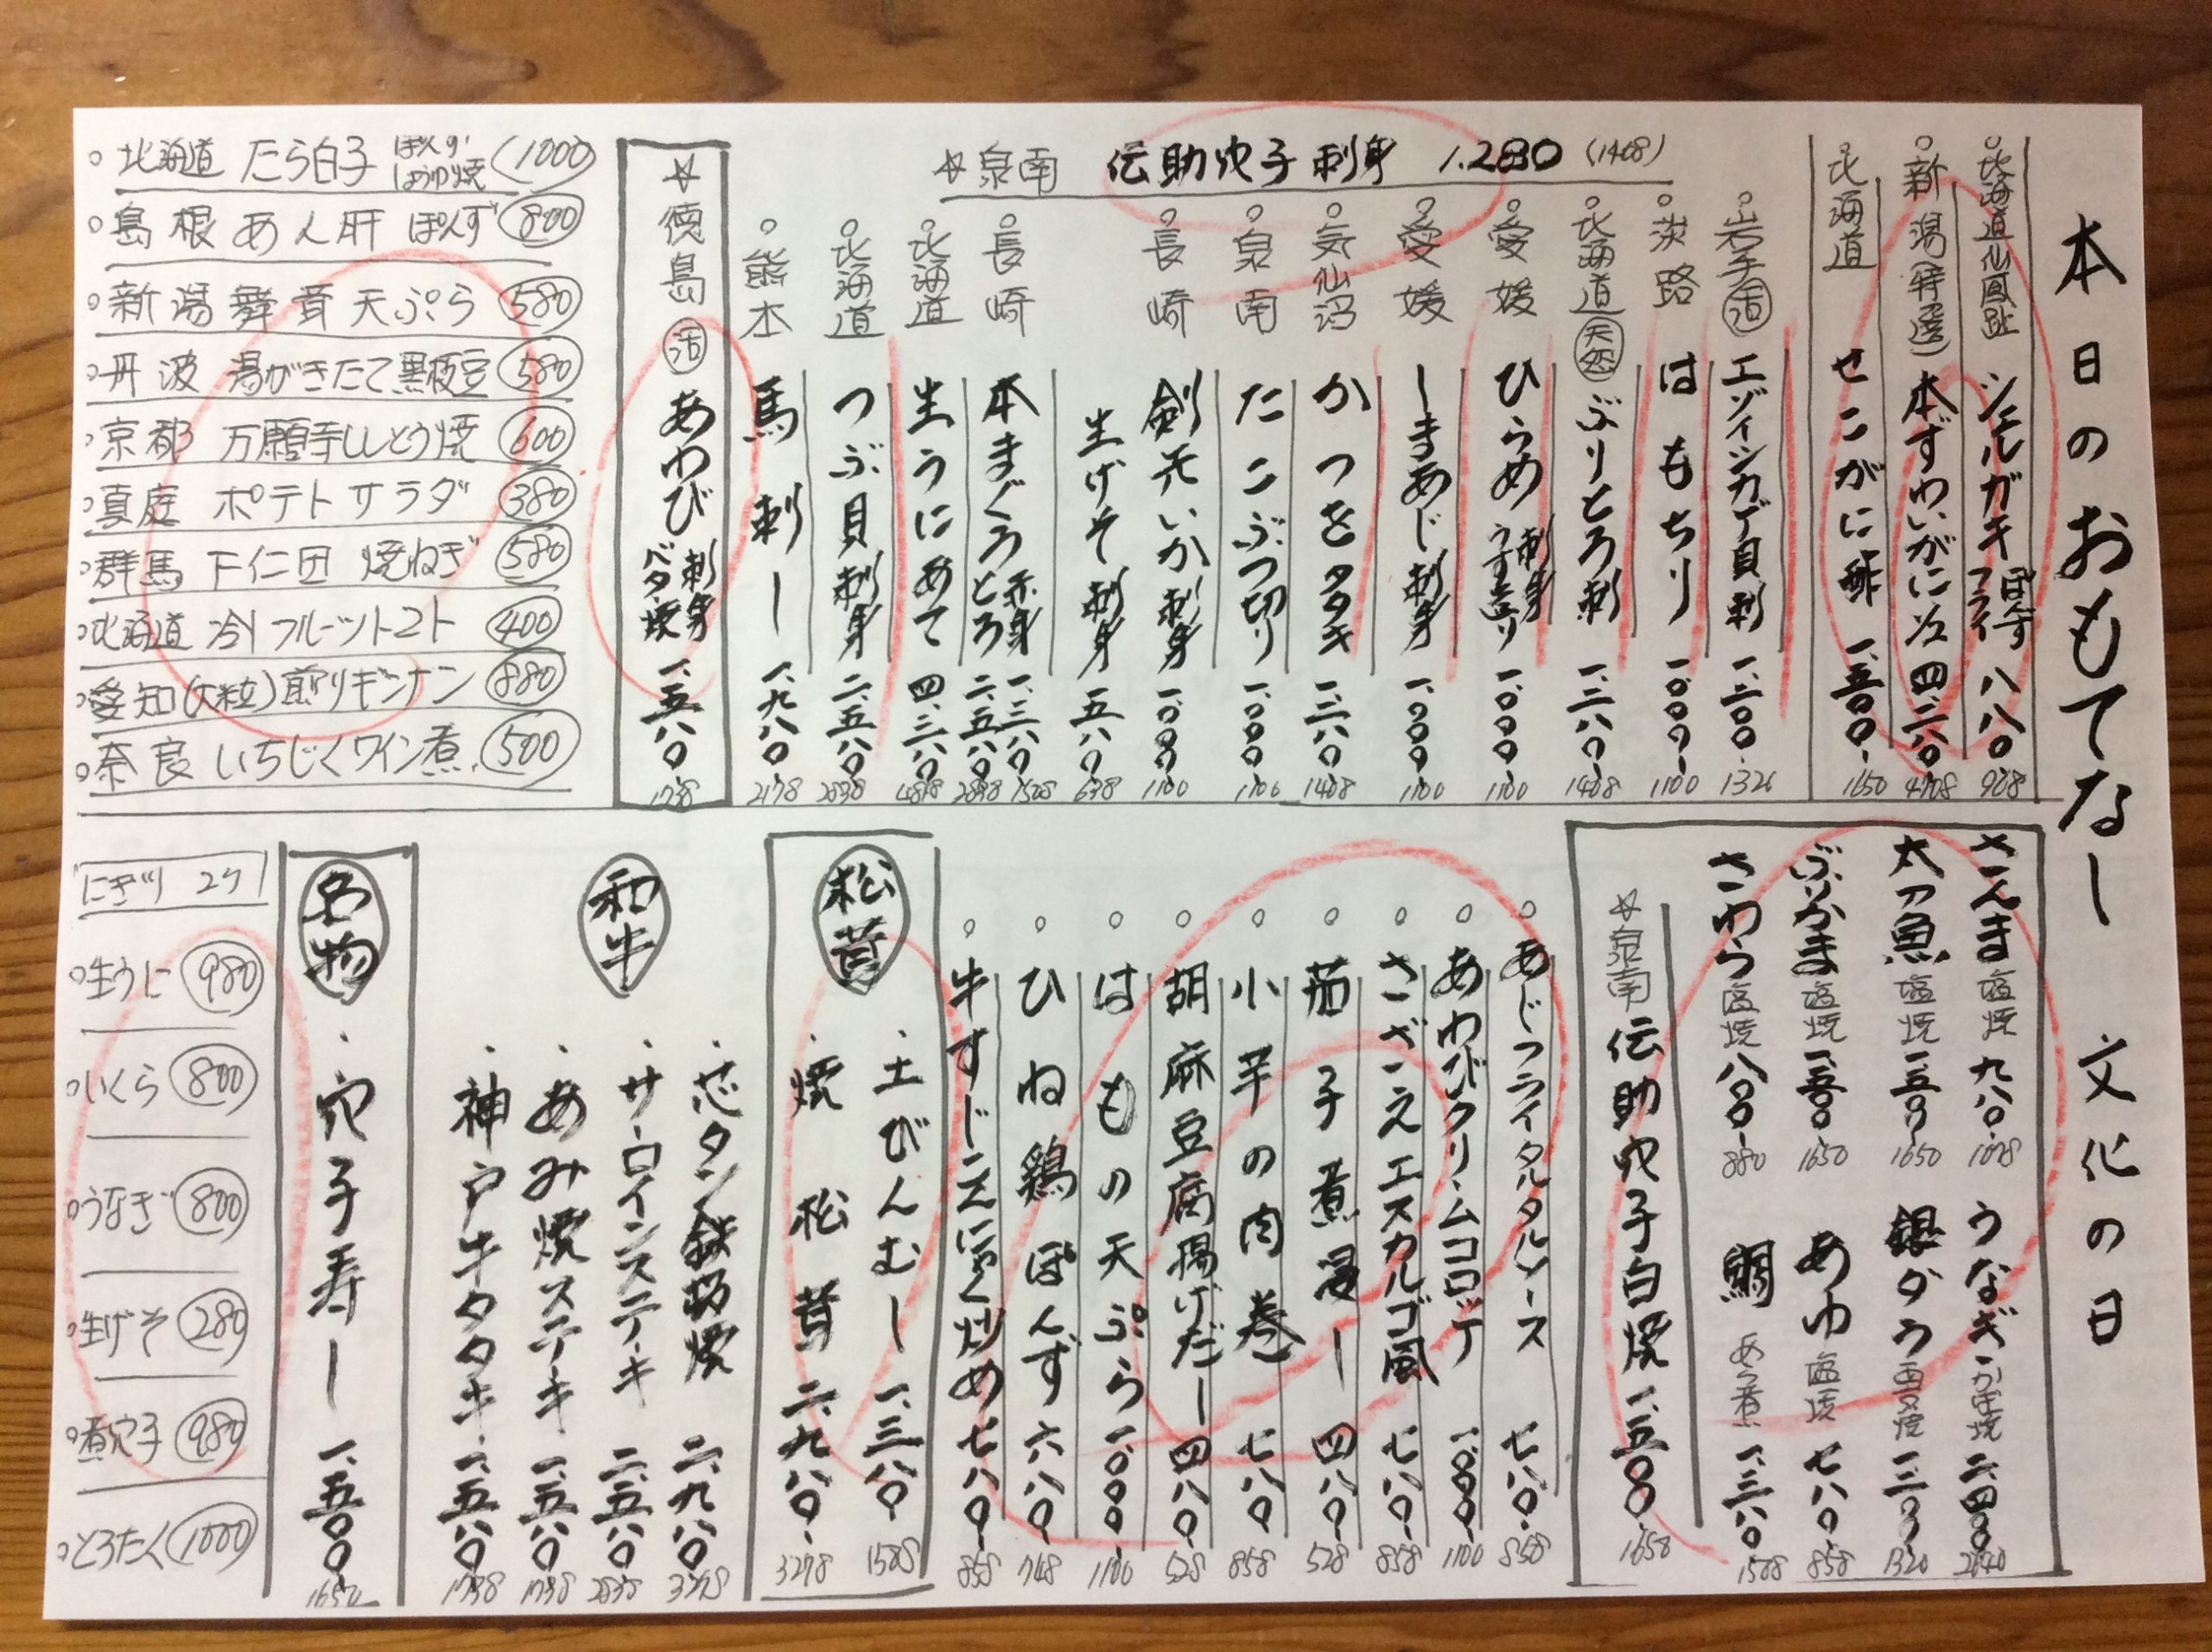 本日のおもてなし 文化の日
○北海道仙鳳趾 シェルガキ ぽんず フライ 八八〇 968
○新潟(特選) 本ずわいがに 四二八〇 4708
○北海道 せこがに酢 一、五〇〇 1650
☆泉南 伝助穴子刺身 1.280 (1408)
○岩手 活 エゾイシカゲ貝刺 一、二〇〇
○淡路 はもちり 一、〇〇〇 1100
○北海道 天然 ぶりとろ刺 一、二八〇 1408
○愛媛 ひらめ 刺身 うす造り 一、〇〇〇 1100
○愛媛 しまあじ刺身 一、〇〇〇 1100
○気仙沼 かつをタタキ 一、二八〇 1408
○泉南 たこぶつ切り 一、〇〇〇 1100
○長崎 剣先いか刺身 一、〇〇〇 1100
生げそ刺身 五八〇 638
○長崎 本まぐろ 赤身 とろ 二、五八〇 2838
○北海道 生うにあて 四、三八〇 4818
○北海道 つぶ貝刺身 二、五八〇 2838
○熊本 馬刺し 一、九八〇 2178
☆徳島 活 あわび 刺身 バタ焼 一、五八〇 1738
○北海道 たら白子 ぽんず しょうゆ焼 1000
○島根 あん肝 ぽんず 800
○新潟 舞茸 天ぷら 580
○丹波 湯がきたて黒枝豆 580
○京都 万願寺ししとう焼 600
○真庭 ポテトサラダ 380
○群馬 下仁田 焼ねぎ 580
○北海道 冷フルーツトマト 400
○愛知(大粒)煎りギンナン 880
○奈良 いちじくワイン煮 500
さんま 塩焼 九八〇 1078
うなぎ かば焼 二、四〇〇 2640
太刀魚 塩焼 一、五〇〇 1650
銀ダラ 西京焼 一、二〇〇 1320
ぶりかま 塩焼 一、五〇〇 1650
あゆ 塩焼 七八〇 858
さわら 塩焼 八〇〇 880
鯛 あら煮
☆泉南 伝助穴子白焼 一、五〇〇
○あじフライタルタルソース 七八〇 858
○あわびクリームコロッケ 一、〇〇〇 1100
○さざえエスカルゴ風 七八〇 858
○茄子煮浸し 四八〇 528
○小芋の肉巻 七八〇 858
○胡麻豆腐揚げだし 四八〇 528
○はもの天ぷら 一、〇〇〇 1100
○ひね鶏ぽんず 六八〇 748
○牛すじこんにゃく炒め 七八〇 858
松茸
・土びんむし
・焼松茸 二、九八〇 3278
和牛
・芯タン鉄板焼 二、九八〇 3278
・サーロインステーキ 二、五八〇 2838
・あみ焼ステーキ 一、五八〇 1738
・神戸牛タタキ 一、五八〇 1738
名物
・穴子寿し 一、五〇〇 1650
にぎり 2ケ
○生うに 980
○いくら 800
○うなぎ 800
○生げそ 280
○煮穴子 980
○とろたく 1000